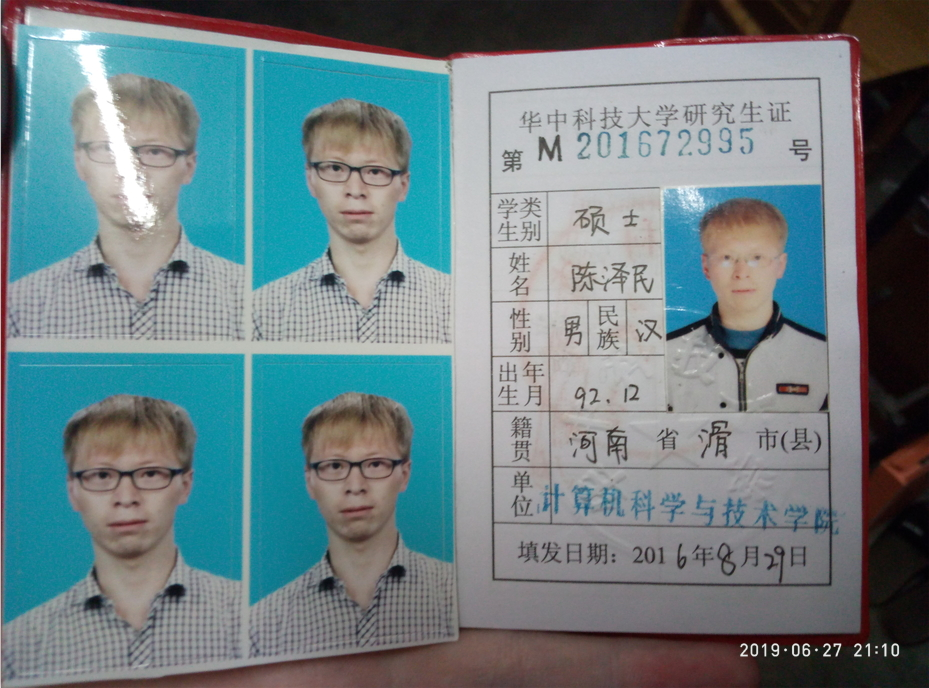 华中科技大学研究生证
第 M 201672995 号
学类生别 硕士
姓名 陈泽民
性别 男 民族 汉
出年生月 92.12
籍贯 河南 省 滑 市(县)
单位 计算机科学与技术学院
填发日期：2016年8月29日
2019·06·27 21:10